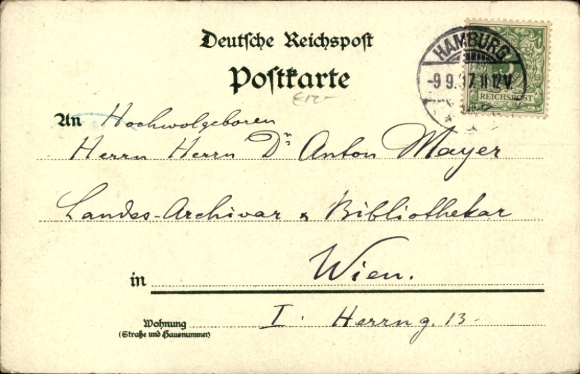 Deutsche Reichspost
Postkarte
HAMBURG
-9 9. 97. 11-12V.
5
REICHSPOST
An Hochwolgeboren
Herrn Herrn Dr. Anton Mayer
Landes-Archivar & Bibliothekar
in Wien.
Wohnung I. Herrng. 13.
(Straße und Hausnummer)